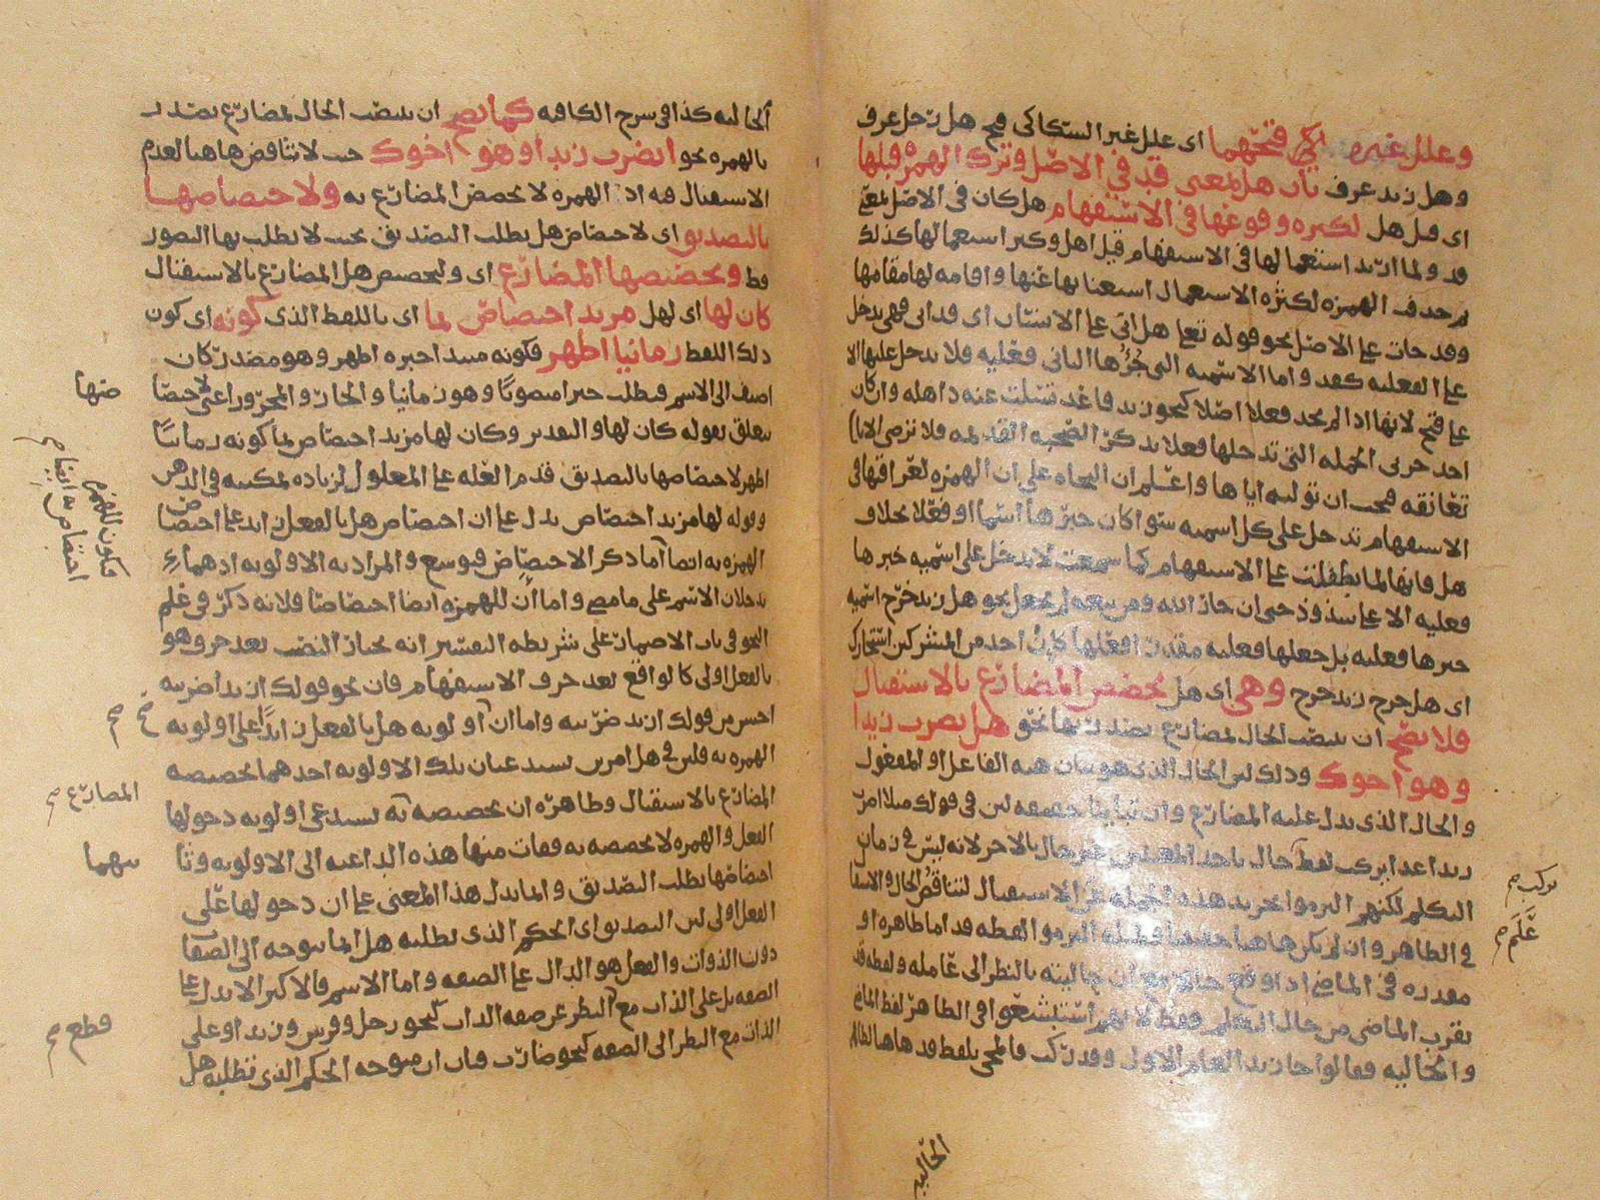 وعلل غيره اي فتحهما اى علل غير السكاكى قبح هل رجل عرف
وهل زيد عرف بان هل بمعنى قد في الاصل وترك الهمزة قبلها
اى قبل هل لكثرة وقوعها في الاستفهام هل كان فى الاصل بمعنى
قد ولما اريد استعمالها فى الاستفهام قيل اهل وكثر استعمالها كذلك
ثم حذف الهمزه لكثرة الاستعمال استغنا بها عنها واقامه لها مقامها
وقد جات على الاصل نحو قوله تعالى هل اتى على الانسان اى قد اتى فهى تدخل
على الفعليه كقد واما الاسميه التى جزؤها الثانى فعليه فلا تدخل عليها الا
على قبح لانها اذا لم تجد فعلا اصلا كنحو زيد قاعد تسلت عنه ذاهله وان كان
احد جزئى الجمله التى تدخلها فعلا تذكر الصحبه القديمه فلا ترضى الا بان
تعانقه فيجب ان توليه اياها واعلم ان النحاه على ان الهمزه لعراقتها فى
الاستفهام تدخل على كل اسميه سوا كان خبرها اسما او فعلا بخلاف
هل فانها لما تطفلت على الاستفهام كما سمعت لا تدخل على اسميه خبرها
فعليه الا على شذوذ حتى ان جار الله ومن تبعه لم يجعل نحو هل زيد خرج اسميه
خبرها فعليه بل جعلها فعليه مقدرا فعلها كان احد من المشركين استجارك
اى هل خرج زيد خرج وهى اى هل تخصص المضارع بالاستقبال
فلا يصح ان ينصب الحال لمضارع يصدر بها نحو هل يضرب زيدا
وهو اخوك وذلك لان الحال الذى هو بيان هيه الفاعل او المفعول
والحال الذى يدل عليه المضارع وان تباينا حقيقه لان فى قولك مثلا اضرب
زيدا غدا يركب لفظ حال باحد المعنيين غير حال بالاخر لانه ليس فى زمان
التكلم لكنهم التزموا تجريد هذه الجمله عن الاستقبال لتناقض الحال والاستقبال
فى الظاهر وان لم يكن هاهنا حقيقا ولمثله التزموا لفظه قد اما ظاهره او
مقدره فى الماضى اذا وقع حالا مع ان حاليته بالنظر الى عامله ولفظه قد
تقرب الماضى من حال التكلم فقط لانهم استبشعوا فى الظاهر لفظ الماضى
والحاليه فقالوا جا زيد العام الاول وقد ركب فالمجى بلفظ قد هاهنا لظاهر
يركب صح
علم صح
الحاليه
الحاليه كذا فى شرح الكافيه كما يصح ان ينصب الحال لمضارع يصدر
بالهمزه نحو اتضرب زيدا وهو اخوك حيث لا تناقض هاهنا لعدم
الاستقبال فيه اذ الهمزه لا تخصص المضارع به ولاختصاصها
بالتصديق اى لاختصاص هل بطلب التصديق بحيث لا يطلب بها التصور
قط وتخصيصها المضارع اى ولتخصص هل المضارع بالاستقبال
كان لها اى لهل مزيد اختصاص بما اى باللفظ الذى كونه اى كون
ذلك اللفظ زمانيا اظهر فكونه مبتدا خبره اظهر وهو مصدر كان
اضيف الى الاسم فيطلب خبرا منصوبا وهو زمانيا والجار والمجرور اعنى لاختصاصها
يتعلق بقوله كان لها والتقدير وكان لها مزيد اختصاص بما كونه زمانيا
اظهر لاختصاصها بالتصديق قدم العله على المعلول لزياده تمكنه فى الذهن
وقوله لها مزيد اختصاص يدل على ان اختصاص هل بالفعل زايد على اختصاص
الهمزه به ايضا اما ذكر الاختصاص فتوسع والمراد به الاولويه اذ هما
يدخلان الاسم على ما مضى واما ان للهمزه ايضا اختصاصا فلانه ذكر فى علم
النحو فى باب الاضمار على شريطه التفسير انه يختار النصب بعد حرف وهو
بالفعل اولى كالواقع بعد حرف الاستفهام فان نحو قولك ازيدا ضربته
احسن من قولك ازيد ضربته واما ان اولويه هل بالفعل زايدا على اولويه
الهمزه به فلان فى هل امرين يستدعيان تلك الاولويه احدهما تخصيصه
المضارع بالاستقبال وظاهره ان تخصيصه به يستدعى اولويه دخولها
الفعل والهمزه لا تخصصه به ففات منها هذه الداعيه الى الاولويه وثانيا
اختصاصها بطلب التصديق وانما يدل هذا المعنى على ان دخولها على
الفعل اولى لان التصديق اى الحكم الذى تطلبه هل انما يتوجه الى الصفات
دون الذوات والفعل هو الدال على الصفه واما الاسم فالاكثر الا يدل على
الصفه بل على الذات مع النظر عن صفه الذات كنحو رجل وفرس وزيد او على
الذات مع النظر الى الصفه كنحو ضارب فبان ان متوجه الحكم الذى تطلبه هل
منها
فيكون للهمزه
اختصاص به ايضا صح
صح
المضارع صح
منهما
قطع صح